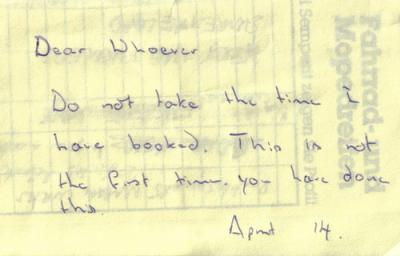 Dear Whoever
Do not take the time I
have booked. This is not
the first time. you have done
this.
Apart 14.